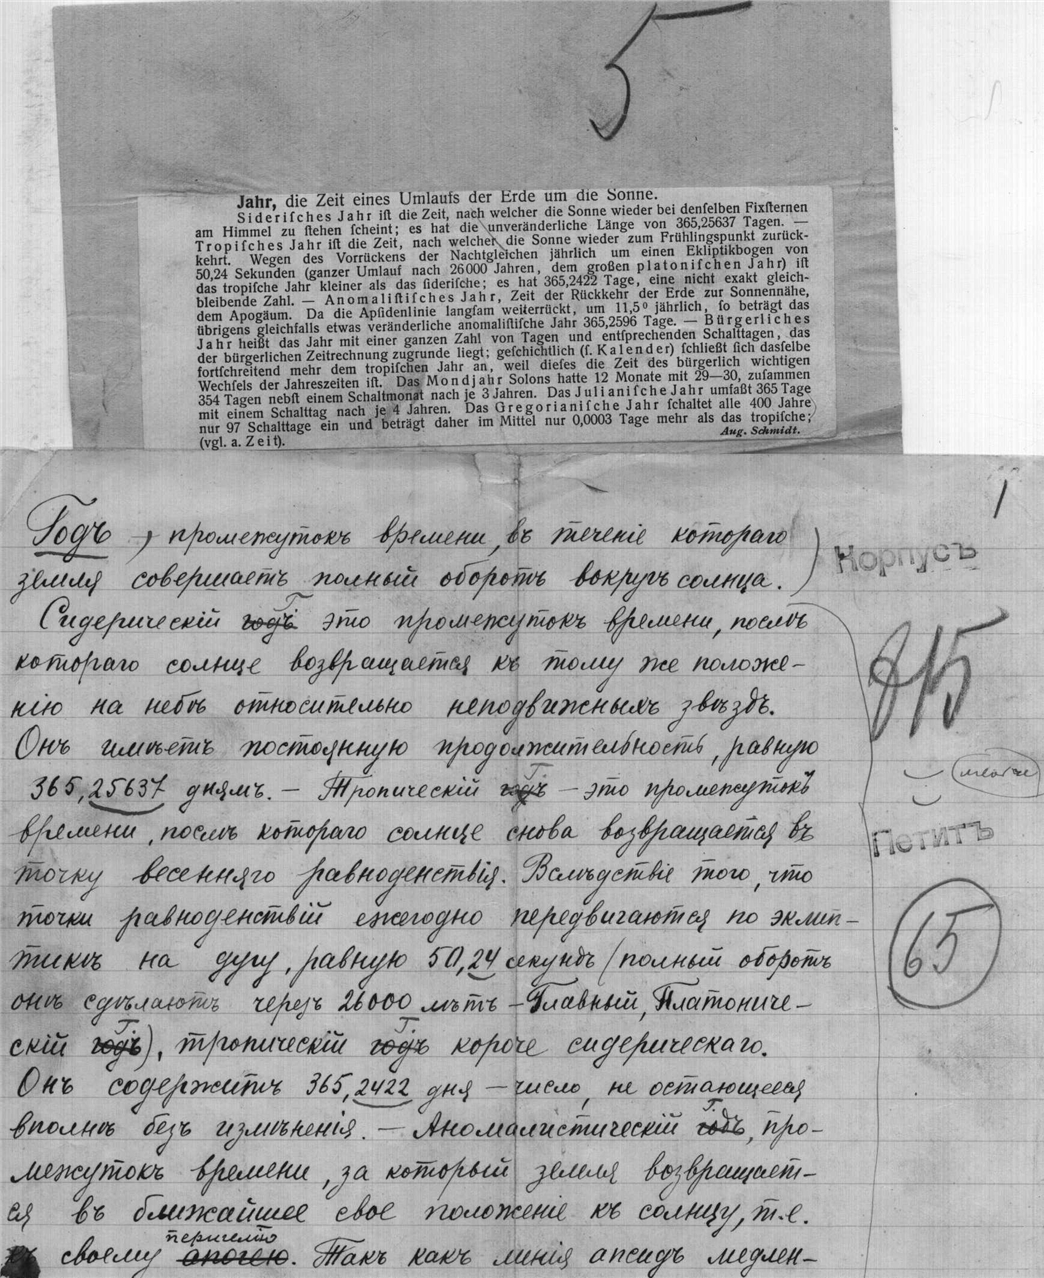 5
Jahr, die Zeit eines Umlaufs der Erde um die Sonne.
Sideriſches Jahr iſt die Zeit, nach welcher die Sonne wieder bei denſelben Fixſternen
am Himmel zu ſtehen ſcheint; es hat die unveränderliche Länge von 365,25637 Tagen. —
Tropiſches Jahr iſt die Zeit, nach welcher die Sonne wieder zum Frühlingspunkt zurück-
kehrt. Wegen des Vorrückens der Nachtgleichen jährlich um einen Ekliptikbogen von
50,24 Sekunden (ganzer Umlauf nach 26000 Jahren, dem großen platoniſchen Jahr) iſt
das tropiſche Jahr kleiner als das ſideriſche; es hat 365,2422 Tage, eine nicht exakt gleich-
bleibende Zahl. — Anomaliſtiſches Jahr, Zeit der Rückkehr der Erde zur Sonnennähe,
dem Apogäum. Da die Apſidenlinie langſam weiterrückt, um 11,5⁰ jährlich, ſo beträgt das
übrigens gleichfalls etwas veränderliche anomaliſtiſche Jahr 365,2596 Tage. — Bürgerliches
Jahr heißt das Jahr mit einer ganzen Zahl von Tagen und entſprechenden Schalttagen, das
der bürgerlichen Zeitrechnung zugrunde liegt; geſchichtlich (ſ. Kalender) ſchließt ſich dasſelbe
fortſchreitend mehr dem tropiſchen Jahr an, weil dieſes die Zeit des bürgerlich wichtigen
Wechſels der Jahreszeiten iſt. Das Mondjahr Solons hatte 12 Monate mit 29—30, zuſammen
354 Tagen nebſt einem Schaltmonat nach je 3 Jahren. Das Julianiſche Jahr umfaßt 365 Tage
mit einem Schalttag nach je 4 Jahren. Das Gregorianiſche Jahr ſchaltet alle 400 Jahre
nur 97 Schalttage ein und beträgt daher im Mittel nur 0,0003 Tage mehr als das tropiſche;
(vgl. a. Zeit).
Aug. Schmidt.
1
Годъ, промежутокъ времени, въ теченіе котораго
земля совершаетъ полный оборотъ вокругъ солнца.
Корпусъ
Сидерическій годъ Г. это промежутокъ времени, послѣ
котораго солнце возвращается къ тому же положе-
нію на небѣ относительно неподвижныхъ звѣздъ.
Онъ имѣетъ постоянную продолжительность, равную
365,25637 днямъ. — Тропическій годъ Г. — это промежутокъ
времени, послѣ котораго солнце снова возвращается въ
Петитъ
точку весенняго равноденствія. Вслѣдствіе того, что
точки равноденствій ежегодно передвигаются по эклип-
65
тикѣ на дугу, равную 50,24 секундъ (полный оборотъ
онѣ сдѣлаютъ черезъ 26000 лѣтъ — Главный, Платониче-
скій годъ Г.), тропическій годъ Г. короче сидерическаго.
Онъ содержитъ 365,2422 дня — число, не остающееся
вполнѣ безъ измѣненія. — Аномалистическій годъ Г., про-
межутокъ времени, за который земля возвращает-
ся въ ближайшее свое положеніе къ солнцу, т.е.
къ своему апогею перигелію. Такъ какъ линія апсидъ медлен-